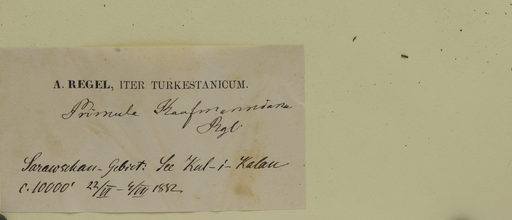 A. REGEL, ITER TURKESTANICUM.
Primula Kaufmanniana
Rgl
Sarawschan-Gebiet: See Kul-i-Kalan
c. 10000' 22/VI – 4/VII 1882.